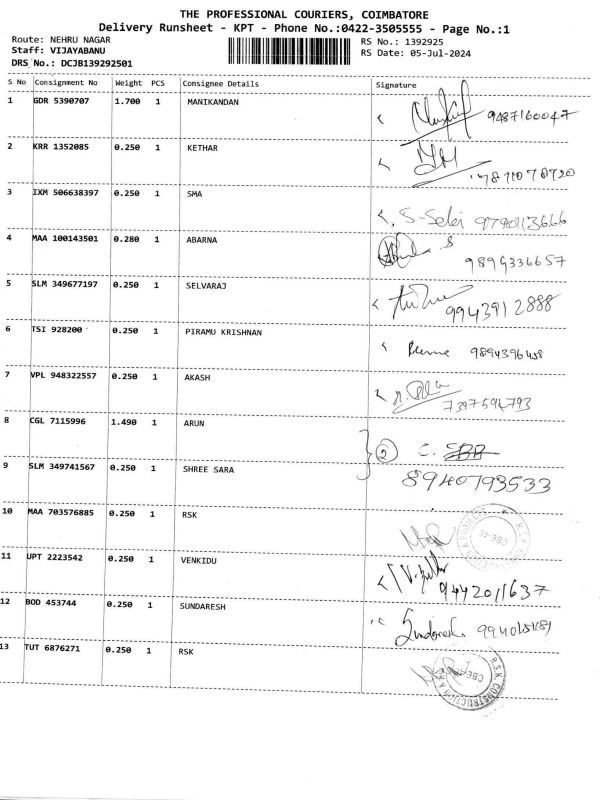 THE PROFESSIONAL COURIERS, COIMBATORE
Delivery Runsheet - KPT - Phone No.:0422-3505555 - Page No.:1
Route: NEHRU NAGAR
Staff: VIJAYABANU
DRS No.: DCJB139292501
RS No.: 1392925
RS Date: 05-Jul-2024
S No Consignment No Weight PCS Consignee Details Signature
1 GDR 5390707 1.700 1 MANIKANDAN 9487160047
2 KRR 1352085 0.250 1 KETHAR
3 IXM 506638397 0.250 1 SMA 9790113666
4 MAA 100143501 0.280 1 ABARNA 9894336657
5 SLM 349677197 0.250 1 SELVARAJ 9943912888
6 TSI 928200 0.250 1 PIRAMU KRISHNAN 9894396458
7 VPL 948322557 0.250 1 AKASH 7397594793
8 CGL 7115996 1.490 1 ARUN 2 C.
9 SLM 349741567 0.250 1 SHREE SARA 8940793533
10 MAA 703576885 0.250 1 RSK
11 UPT 2223542 0.250 1 VENKIDU 9442011637
12 BOD 453744 0.250 1 SUNDARESH Sundaresh
13 TUT 6876271 0.250 1 RSK R.S.K. CONSTRUCTION